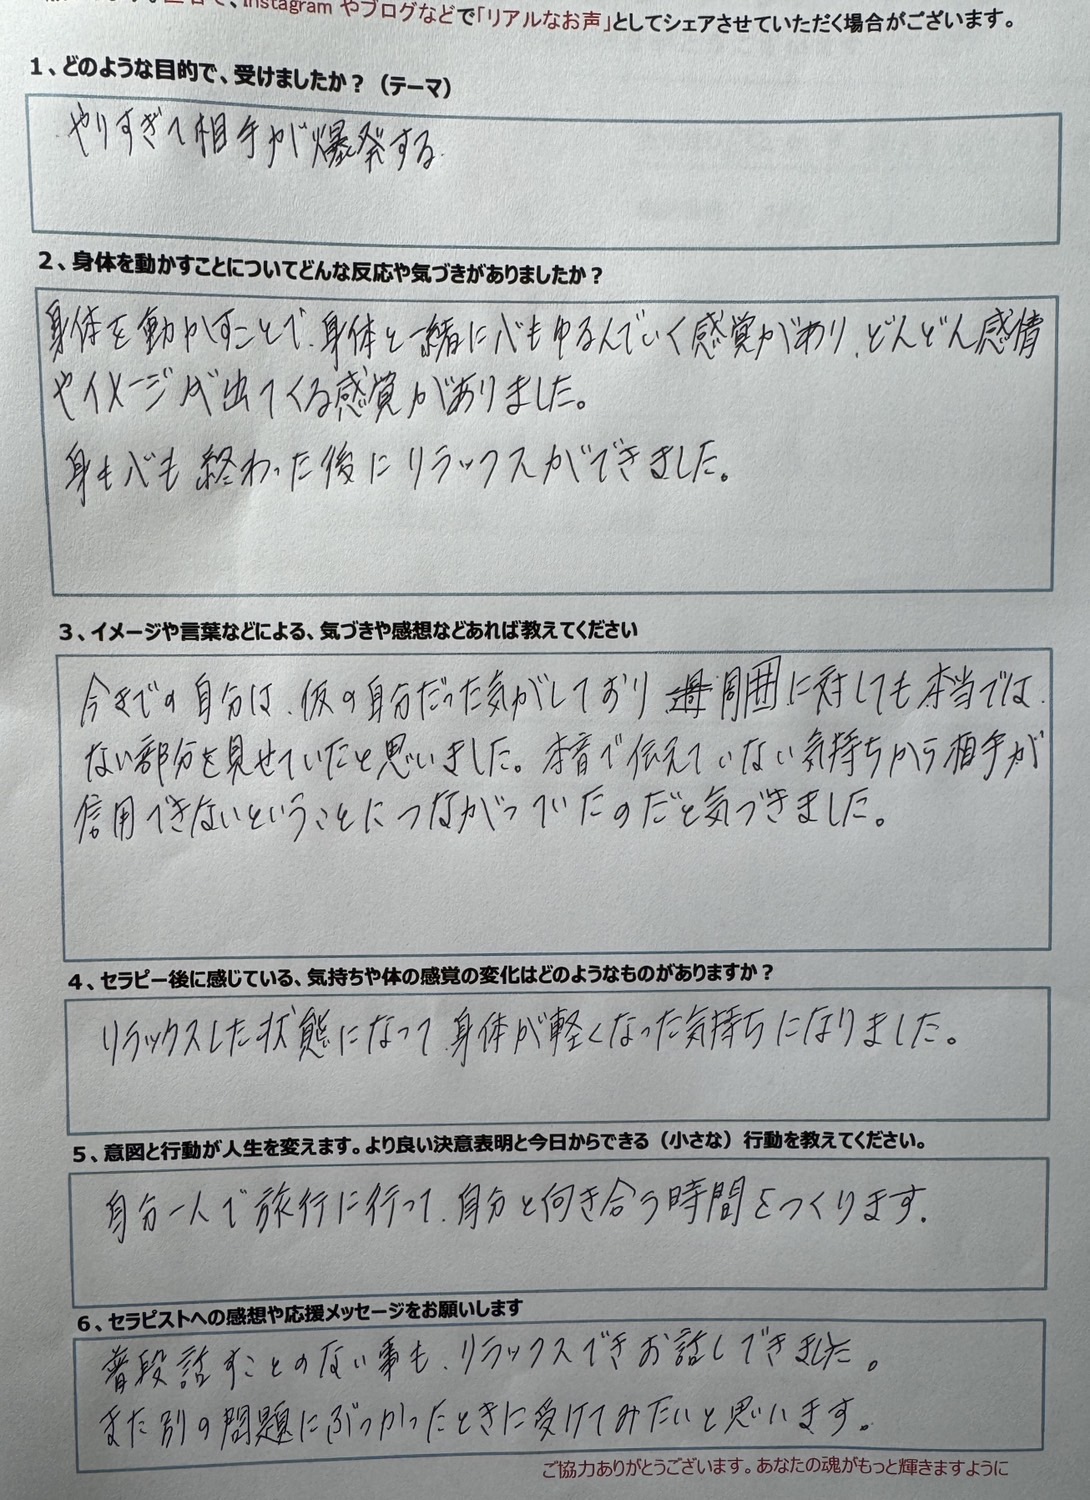 、Instagram やブログなどで「リアルなお声」としてシェアさせていただく場合がございます。
１、どのような目的で、受けましたか？（テーマ）
やりすぎて相手が爆発する
２、身体を動かすことについてどんな反応や気づきがありましたか？
身体を動かすことで、身体と一緒に心もゆるんでいく感覚があり、どんどん感情
やイメージが出てくる感覚がありました。
身も心も終わった後にリラックスができました。
３、イメージや言葉などによる、気づきや感想などあれば教えてください
今までの自分は、仮の自分だった気がしており 周囲に対しても本当では
ない部分を見せていたと思いました。本音で伝えていない気持ちから相手が
信用できないということにつながっていたのだと気づきました。
４、セラピー後に感じている、気持ちや体の感覚の変化はどのようなものがありますか？
リラックスした状態になって身体が軽くなった気持ちになりました。
５、意図と行動が人生を変えます。より良い決意表明と今日からできる（小さな）行動を教えてください。
自分一人で旅行に行って、自分と向き合う時間をつくります。
６、セラピストへの感想や応援メッセージをお願いします
普段話すことのない事も、リラックスできお話しできました。
また別の問題にぶつかったときに受けてみたいと思います。
ご協力ありがとうございます。あなたの魂がもっと輝きますように